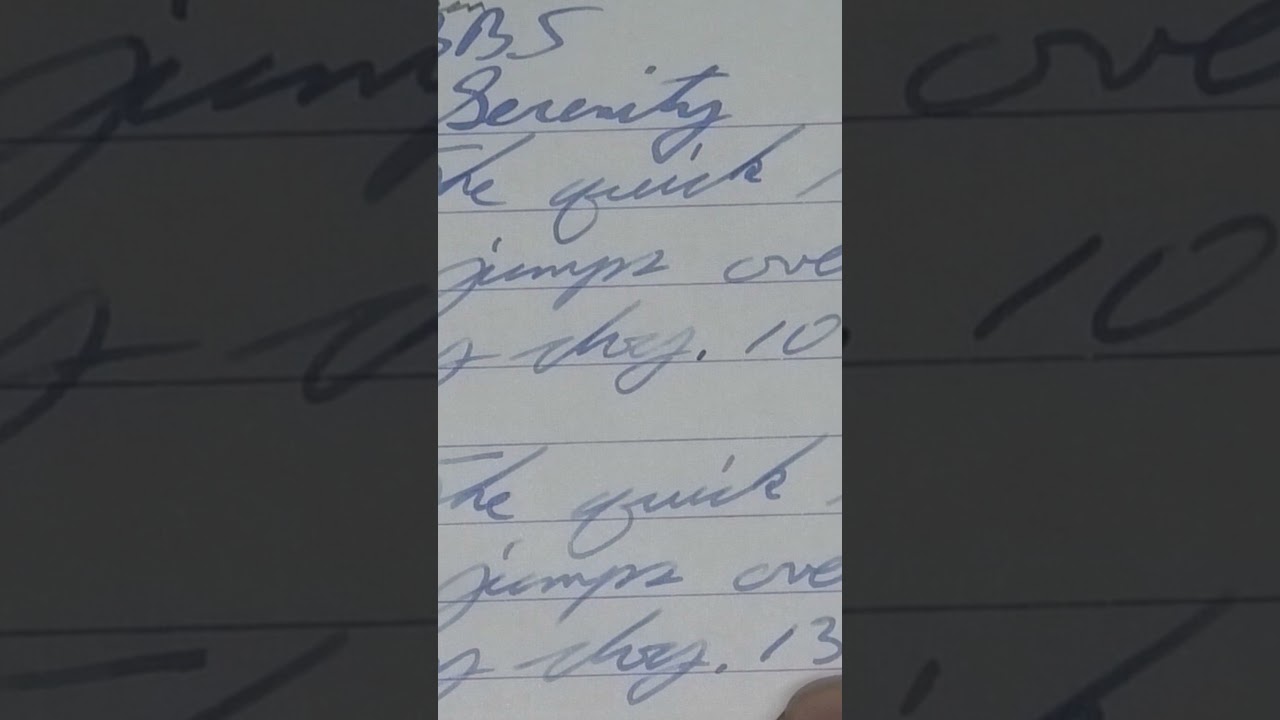 BBS
Serenity
The quick
jumps ove
y dog. 10
The quick
jumps ove
y dog. 13